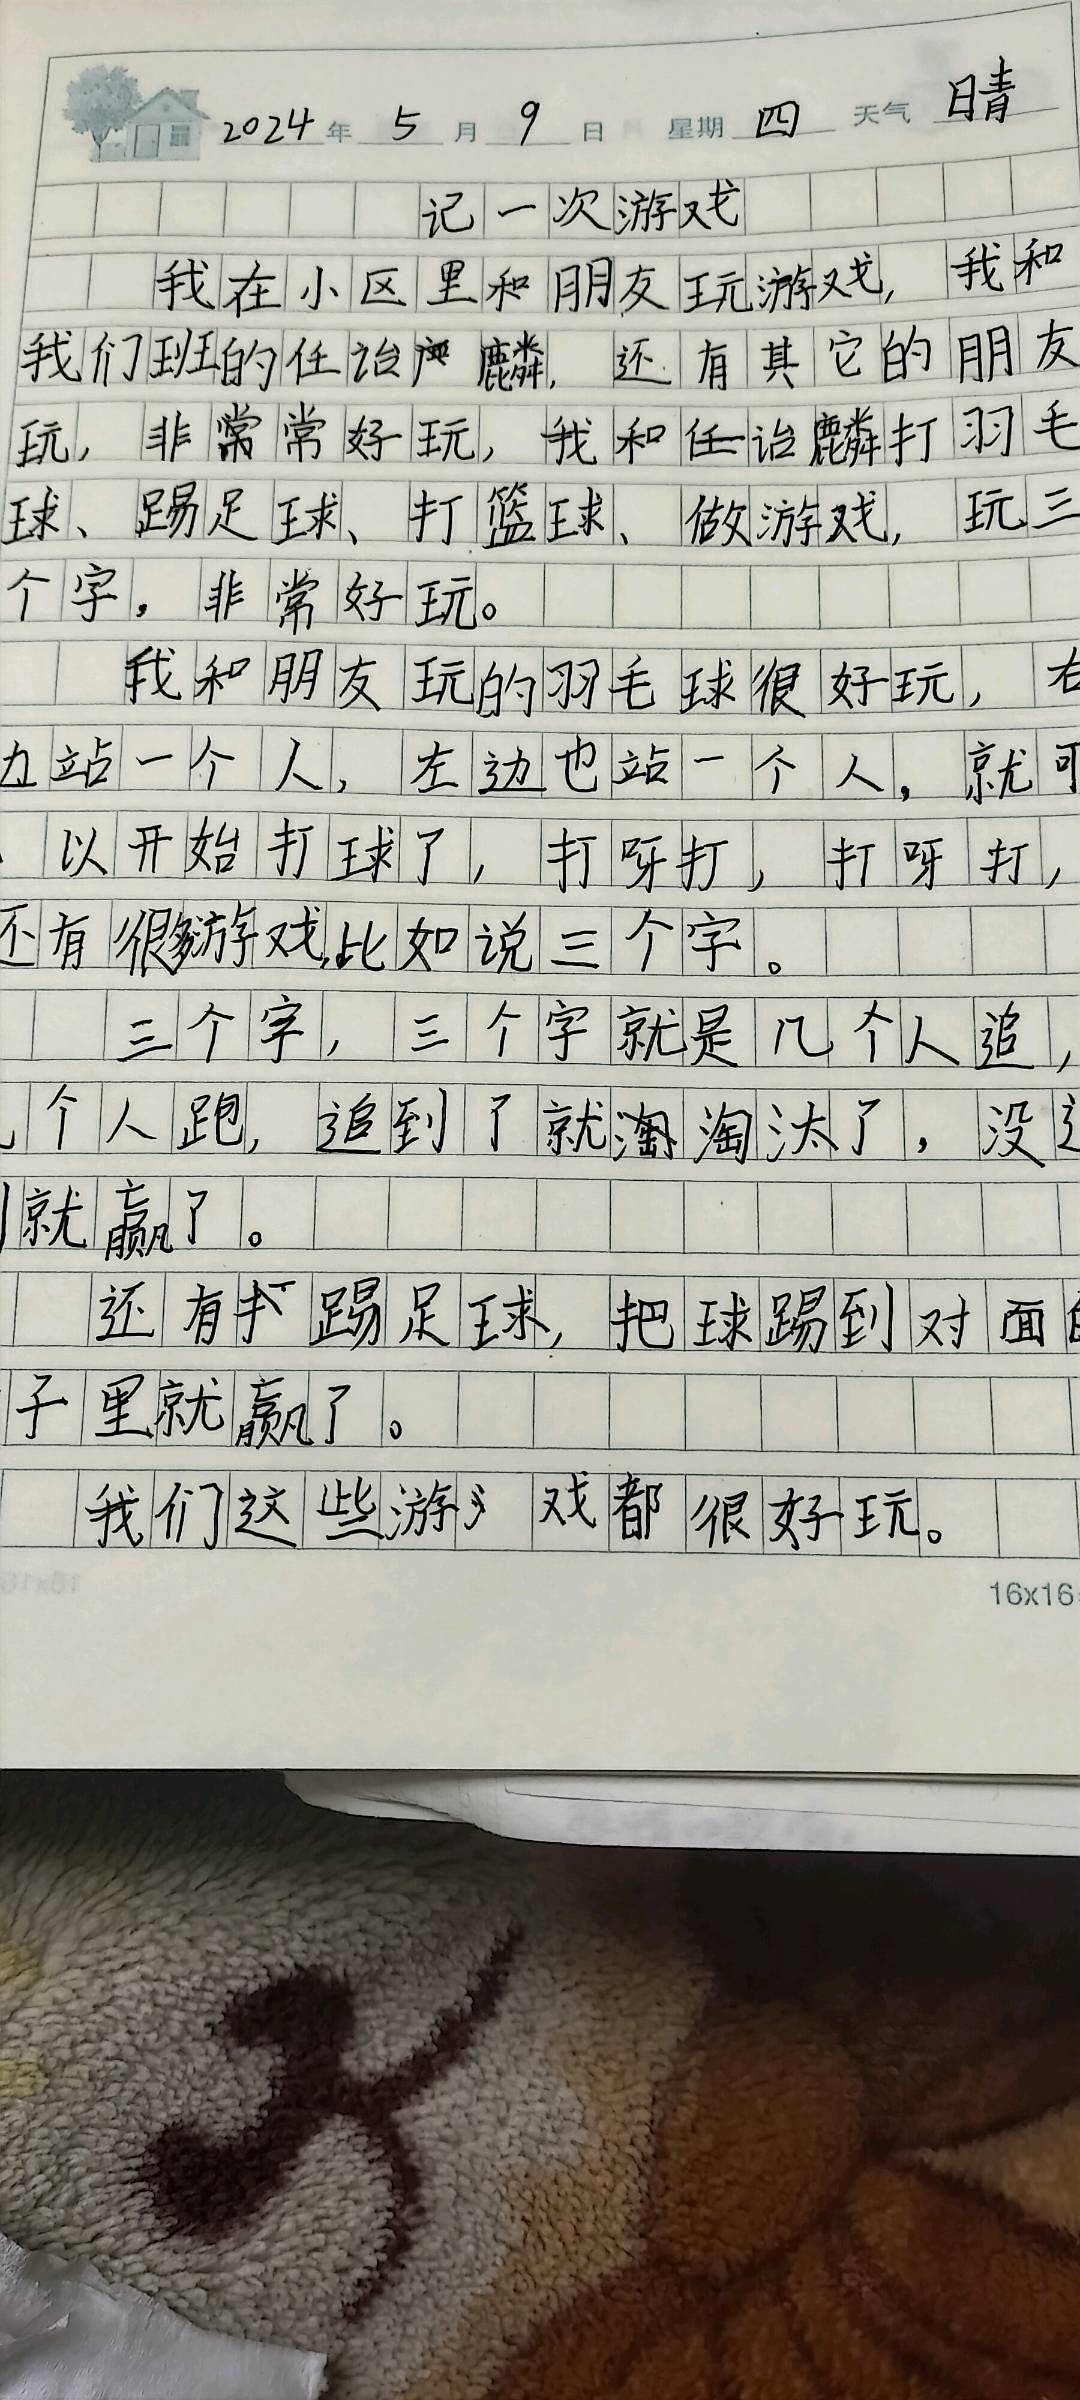 2024年 5月 9日 星期 四 天气 晴
记一次游戏
我在小区里和朋友玩游戏，我和
我们班的任诒麟，还有其它的朋友
玩，非常常好玩，我和任诒麟打羽毛
球、踢足球、打篮球、做游戏，玩三
个字，非常好玩。
我和朋友玩的羽毛球很好玩，右
边站一个人，左边也站一个人，就可
以开始打球了，打呀打，打呀打，
还有很多游戏，比如说三个字。
三个字，三个字就是几个人追，
个人跑，追到了就淘汰了，没追
到就赢了。
还有踢足球，把球踢到对面的
子里就赢了。
我们这些游戏都很好玩。
16x16